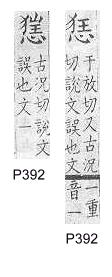 于放切又古況
切說文誤也文
一重
音一
P392
古況切說文
誤也文一
P392